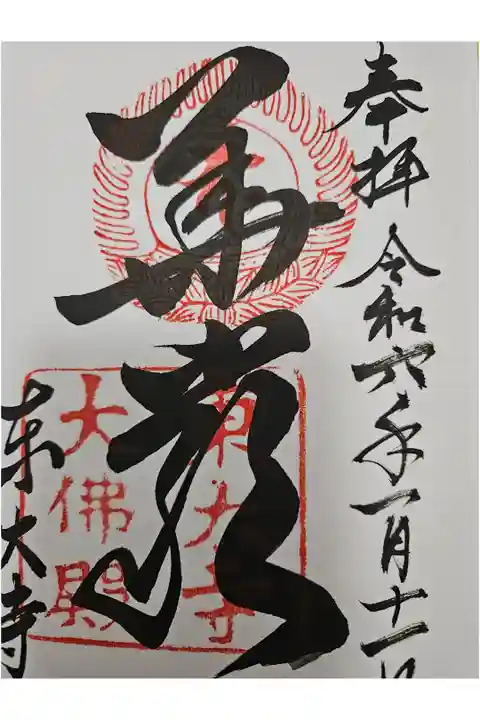 奉拝 令和六年一月十一日
華厳
東大寺
大佛殿
東大寺